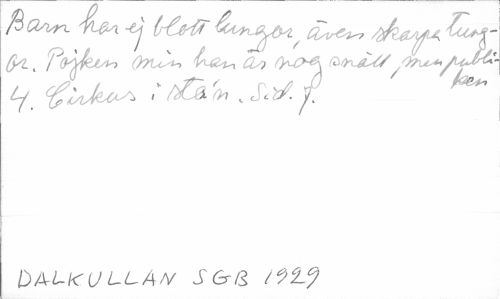 Barn har ej blott lungor, även skarpa tung-
or. Pojken min han är nog snäll, men publi-
ken
4. Cirkus i sta'n. Sid. 7.
DALKULLAN SGB 1929